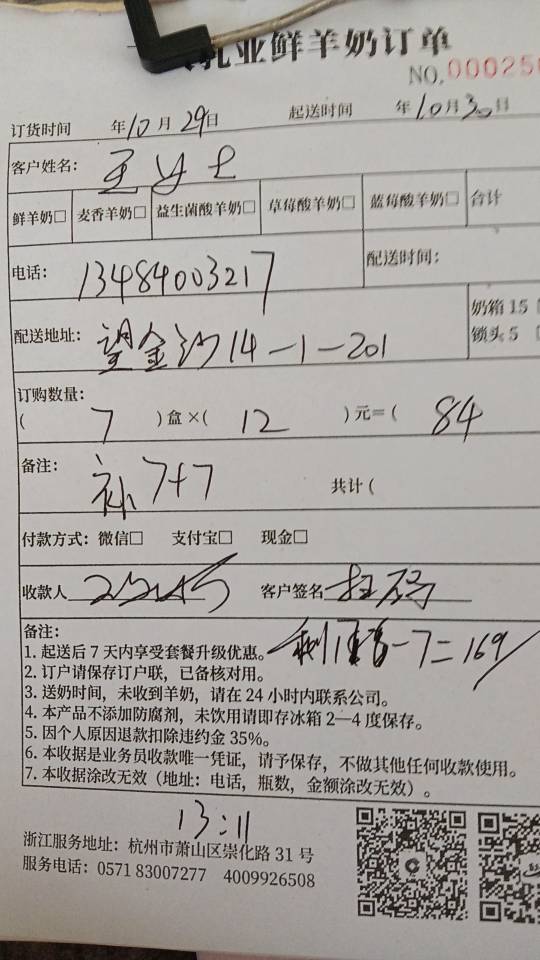 乳业鲜羊奶订单
NO.000250
订货时间 年10月29日 起送时间 年10月30日
客户姓名: 王女士
鲜羊奶□ 麦香羊奶□ 益生菌酸羊奶□ 草莓酸羊奶□ 蓝莓酸羊奶□ 合计
电话: 13484003217 配送时间:
配送地址: 望金沙14-1-201 奶箱 15
锁头 5
订购数量:
( 7 )盒×( 12 )元=( 84
备注: 补7+7 共计(
付款方式: 微信□ 支付宝□ 现金□
收款人 客户签名 扫码
备注: -7=169
1. 起送后 7 天内享受套餐升级优惠。
2. 订户请保存订户联，已备核对用。
3. 送奶时间，未收到羊奶，请在 24 小时内联系公司。
4. 本产品不添加防腐剂，未饮用请即存冰箱 2—4 度保存。
5. 因个人原因退款扣除违约金 35%。
6. 本收据是业务员收款唯一凭证，请予保存，不做其他任何收款使用。
7. 本收据涂改无效（地址：电话，瓶数，金额涂改无效）。
13:11
浙江服务地址：杭州市萧山区崇化路 31 号
服务电话：0571 83007277 4009926508